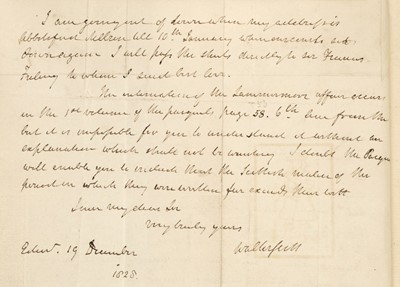 I am going out of town when my address is
Abbotsford Melrose till 10th January when courts sit
down again I will pass the sheets directly to Sir Francis
Freling to whom I send best love.
The intimation of the Lammermoor affair occurs
in the 1st volume of the pasquils page 58. 6th line from the
but it is impossible for you to understand it without an
explanation which shall not be wanting I doubt the Pasquils
will enable you to the Scottish malice of the
period in which they were written far exceeds their wit
I am my dear Sir
very truly yours
Edinr. 19 December Walter Scott
1828.